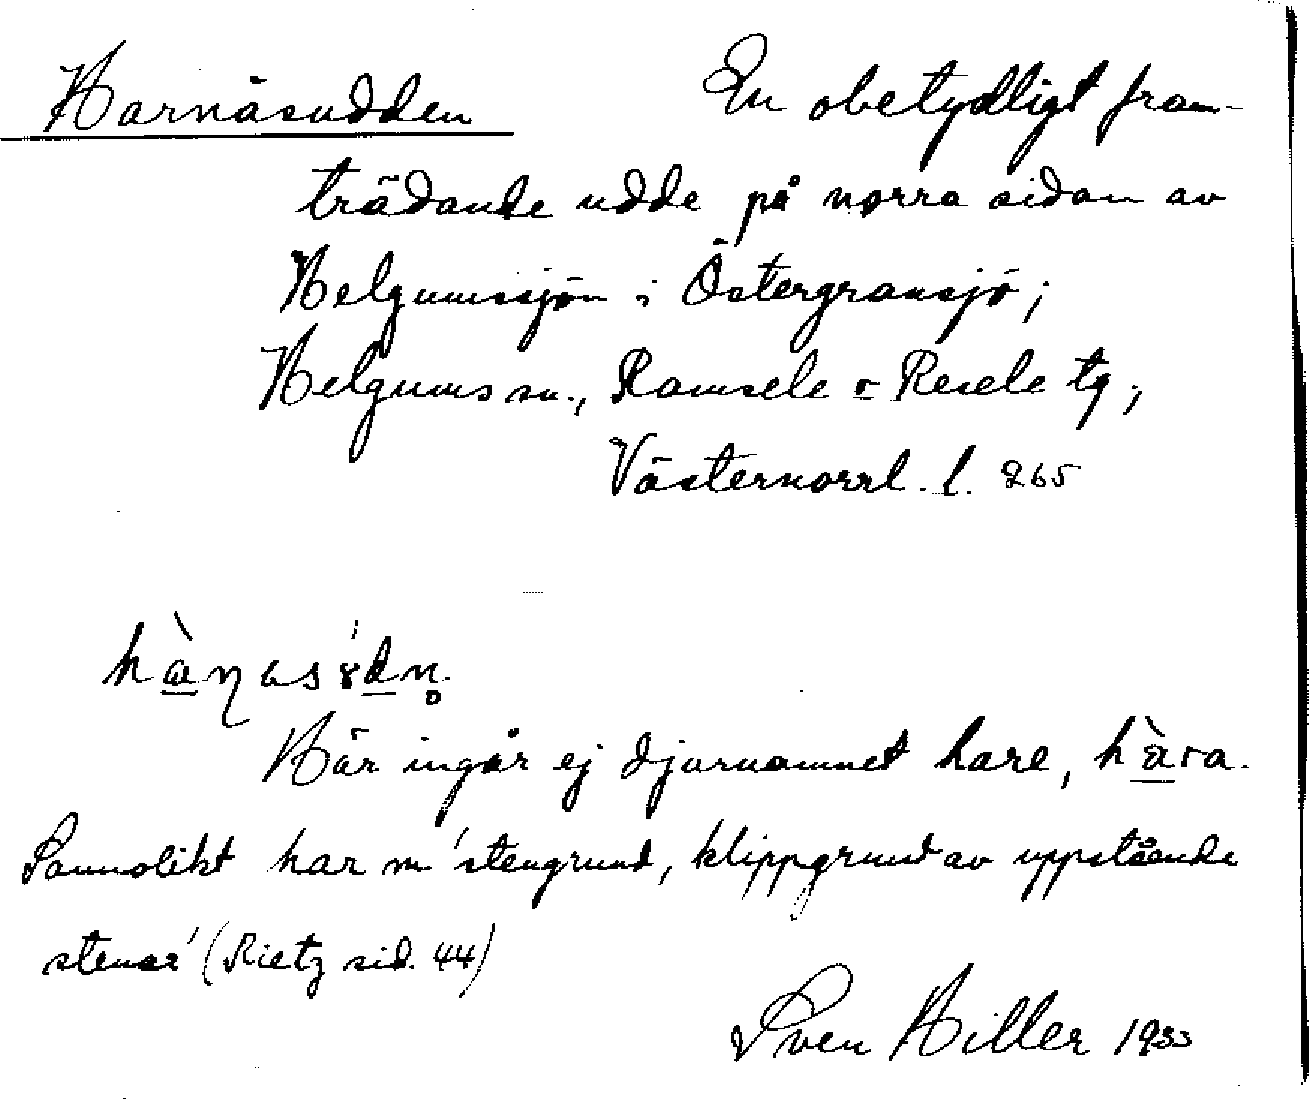 Harnäsudden En obetydligt fram-
trädande udde på norra sidan av
Helgumssjön i Östergransjö;
Helgums sn., Ramsele o Resele tg;
Västernorrl. l. 265
Här ingår ej djurnamnet hare, hàra.
Sannolikt har m 'stengrund, klippgrund av uppstående
stenar' (Rietz sid. 44)
Sven Hiller 1933